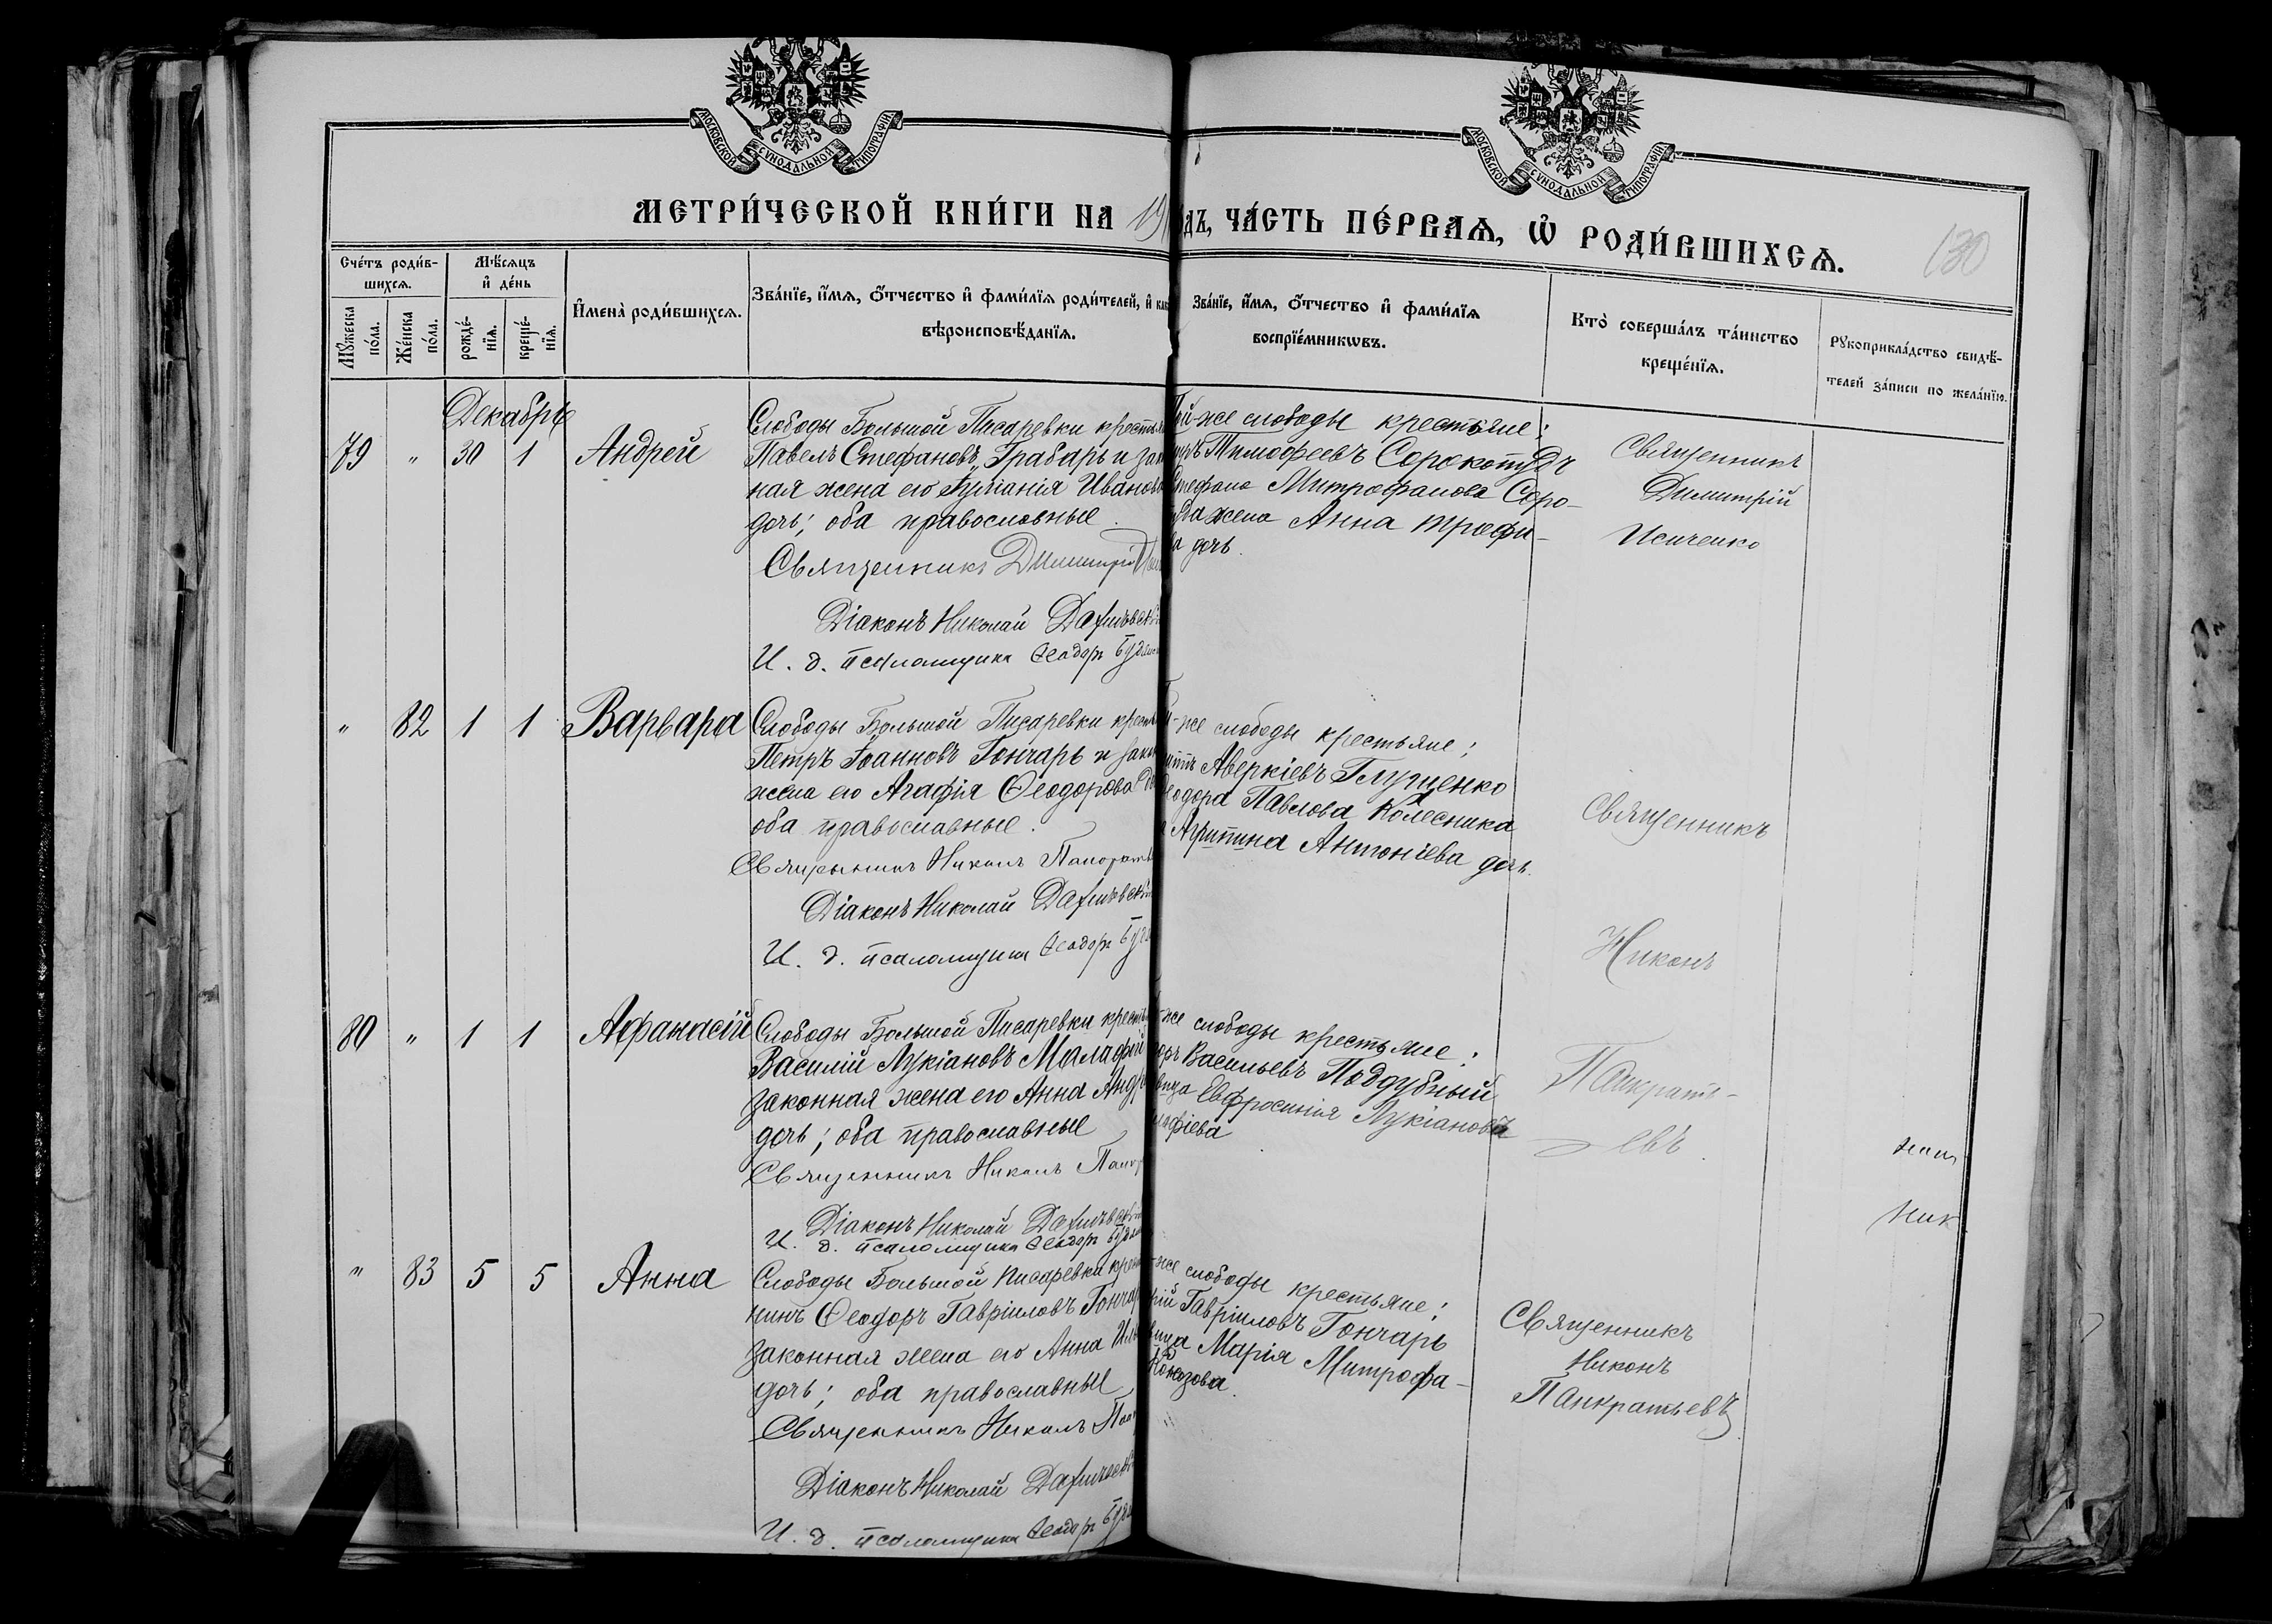 МОСКОВСКОЙ СУНОДАЛЬНОЙ ТИПОГРАФІИ
МОСКОВСКОЙ СУНОДАЛЬНОЙ ТИПОГРАФІИ
МЕТРИ́ЧЕСКОЙ КНИ́ГИ НА 19
дъ, ЧА́СТЬ ПЕ́РВАѦ, Ѡ҆ РОДИ́ВШИХСѦ.
130
Сче́тъ роди́в-
шихсѧ.
Мꙋ́жеска по́ла.
Же́нска по́ла.
Мѣ́сѧцъ
и҆ де́нь
рожде́-нїѧ.
креще́-нїѧ.
И҆мена̀ роди́вшихсѧ.
Зва́нїе, и҆́мѧ, ѻ҆́тчество и҆ фами́лїѧ роди́телей, и҆
вѣроисповѣ́данїѧ.
Зва́нїе, и҆́мѧ, ѻ҆́тчество и҆ фами́лїѧ
воспрїе́мникѡвъ.
Кто̀ соверша́лъ та́инство
креще́нїѧ.
Рꙋкоприкла́дство свидѣ́-
телей за́писи по жела́нїю.
Декабрь
79 " 30 1 Андрей
Слободы Большой Писаревки крестья
Павелъ Стефановъ Грабарь и зак
ная жена его Іуліанія Иванова
дочь; оба православные.
Священникъ Димитрій
Діаконъ Николай
И. д. псаломщика Ѳеодоръ
же слободы крестьяне:
Тимофеевъ Сорокотудъ
Стефана Митрофанова Соро-
жена Анна Трофи-
а дочь.
Священникъ
Димитрій
Исиченко
" 82 1 1 Варвара
Слободы Большой Писаревки крест
Петръ Іоанновъ Гончарь и закон
жена его Агафія Ѳеодорова до
оба православные.
Священникъ Никонъ Панкрать
Діаконъ Николай
И. д. псаломщика Ѳеодоръ
-же слободы крестьяне;
Аверкіевъ Глущенко
еодора Павлова Колесника
Агрипина Антоніева дочь.
Священникъ
Никонъ
Панкрать-
евъ.
80 " 1 1 Афанасій
Слободы Большой Писаревки крест
Василій Лукіановъ Малафей
законная жена его Анна Андр
дочь; оба православные
Священникъ Никонъ Панк
Діаконъ Николай
И. д. псаломщика Ѳеодоръ
-же слободы крестьяне:
Васильевъ Поддубный
вица Евфросинія Лукіанова
лафіева
" 83 5 5 Анна
Слободы Большой Писаревки крест
нинъ Ѳеодоръ Гавріиловъ Гончар
законная жена его Анна Иль
дочь; оба православные
Священникъ Никонъ Пан
Діаконъ Николай
И. д. псаломщика Ѳеодоръ
-же слободы крестьяне;
кій Гавріиловъ Гончарь
вица Марія Митрофа-
Священникъ
Никонъ
Панкратьевъ
Ник